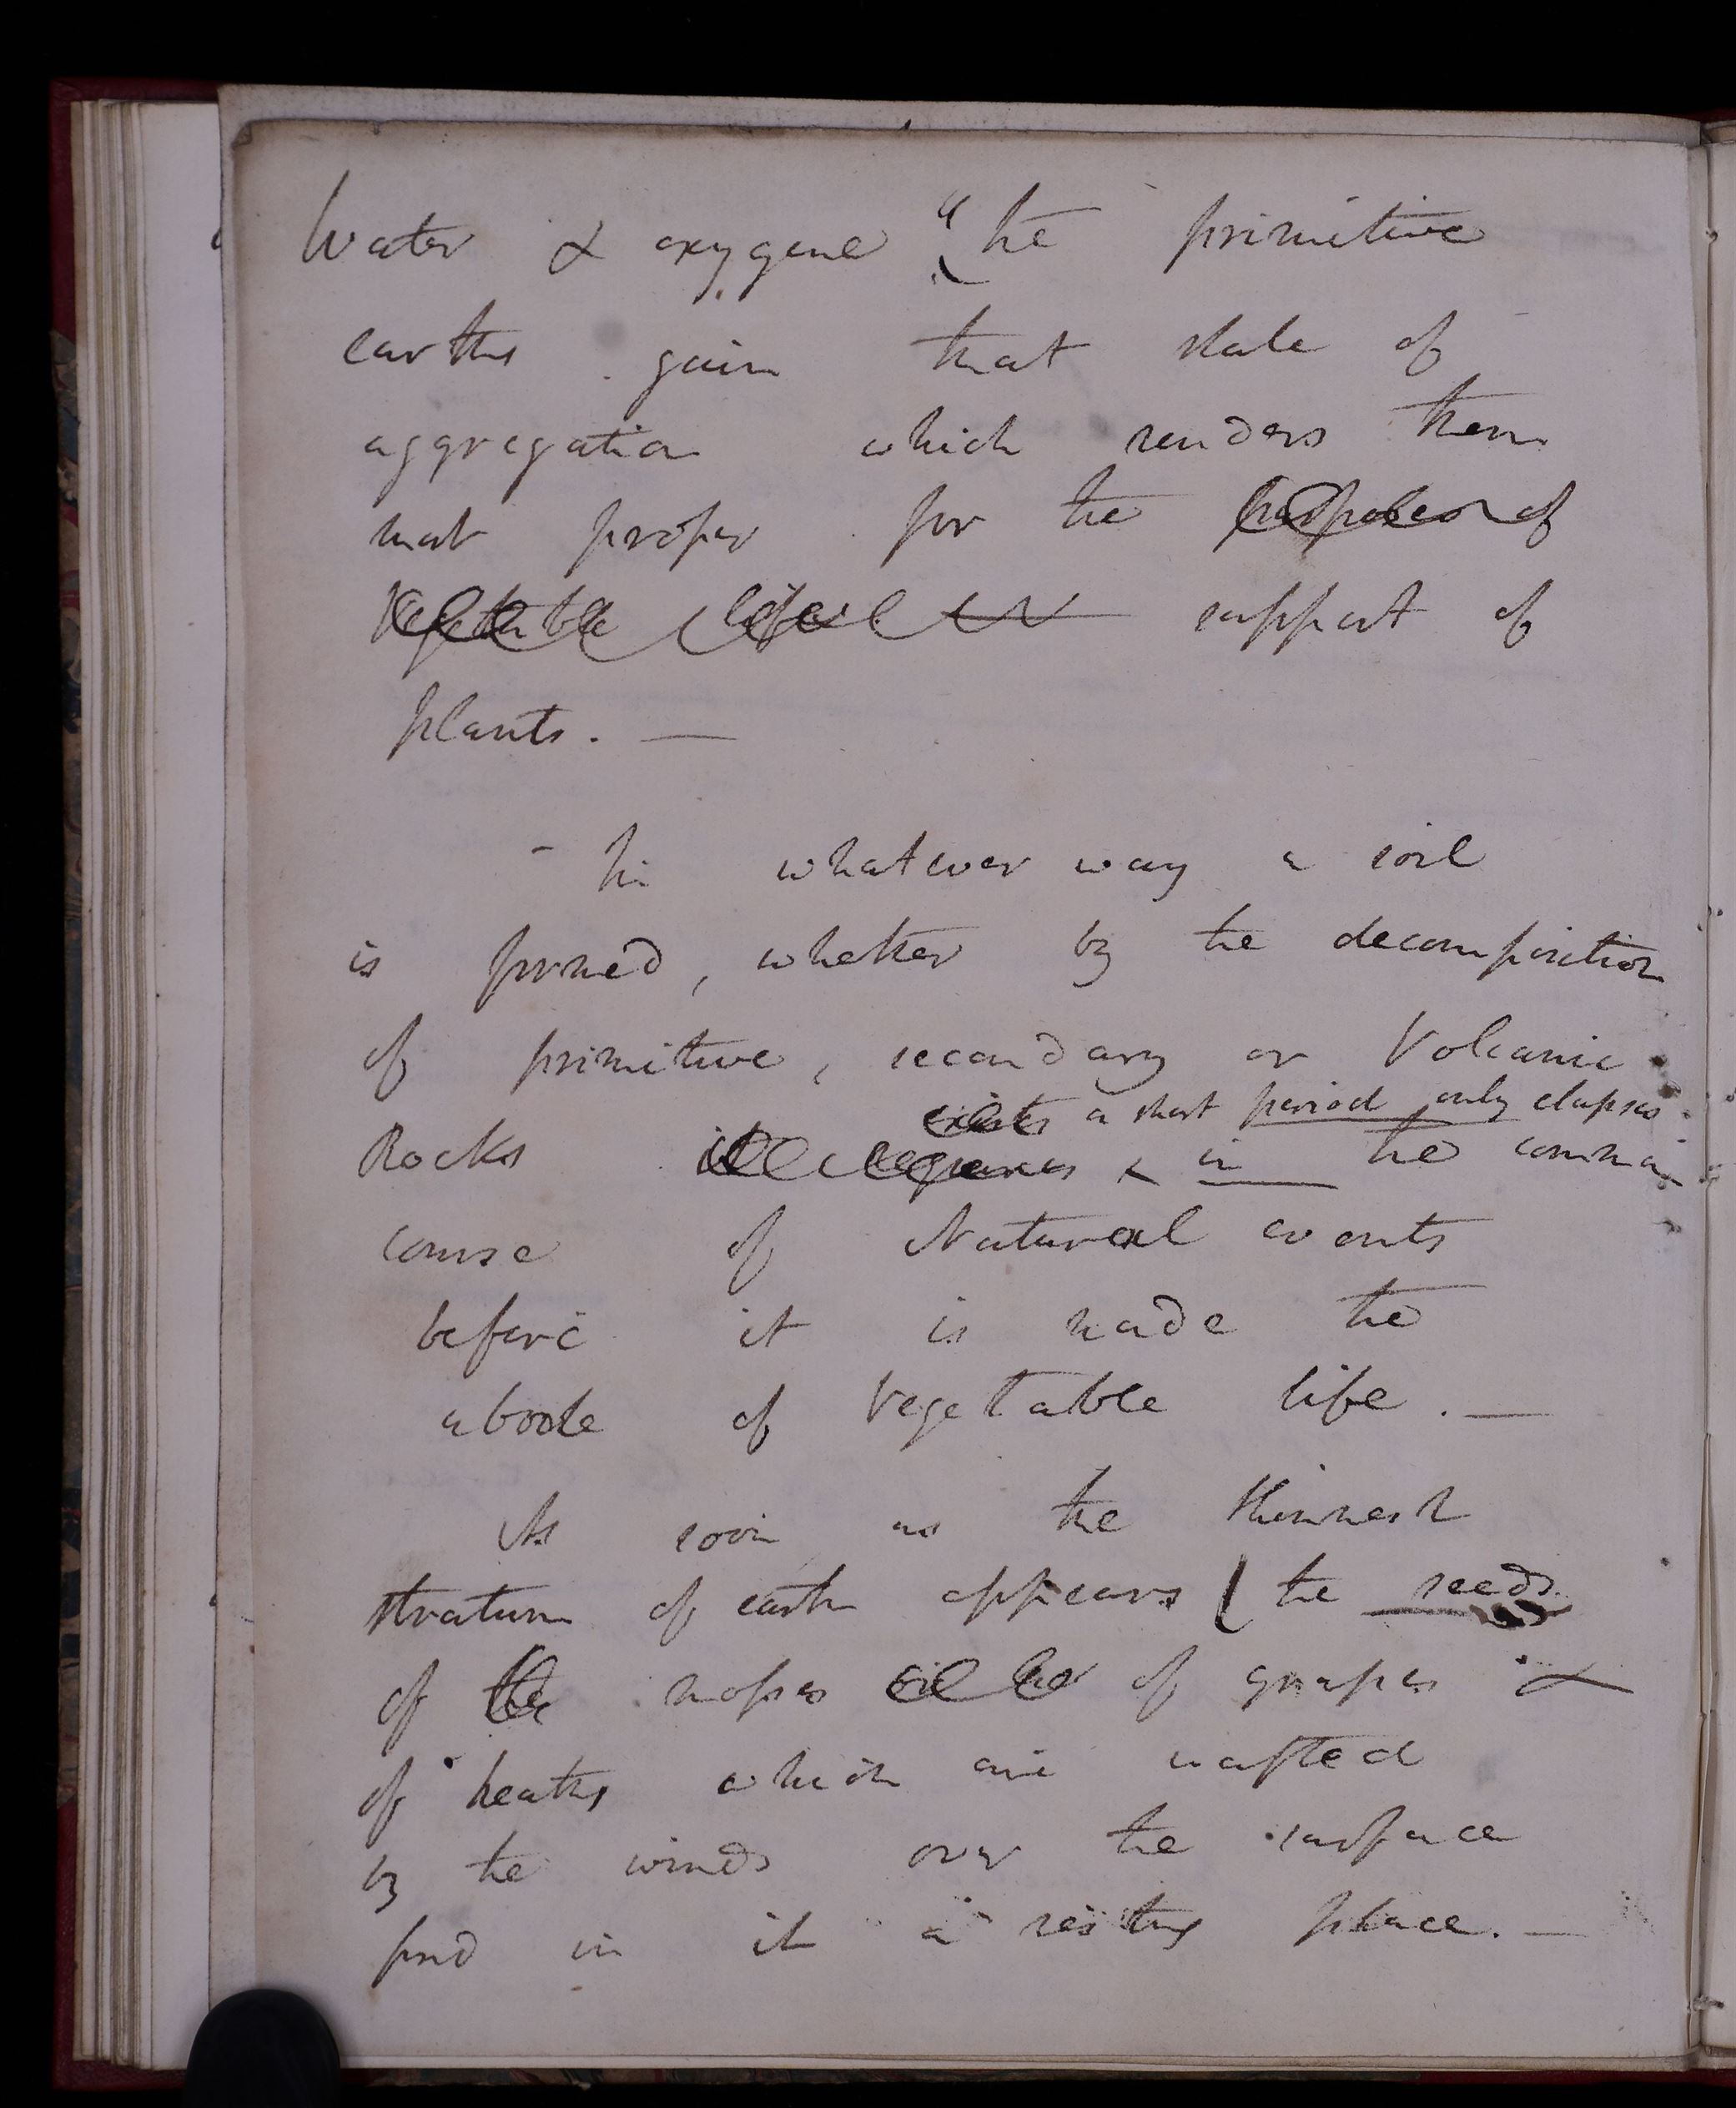 Water & oxygene the primitive
earths gain that state of
aggregation which renders them
most proper for the purposes of
Vegetable life support of
plants. —
- In whatever way a soil
is formed, whether by the decomposition
of primitive, secondary or Volcanic
exists a short period only elapses
Rocks it requires & in the common
course of Natural events
before it is made the
abode of Vegetable life. —
As soon as the thinnest
stratum of earth appears the seeds
of the mosses of grasses &
of heaths which are wafted
by the winds over the surface
find in it a resting place. —